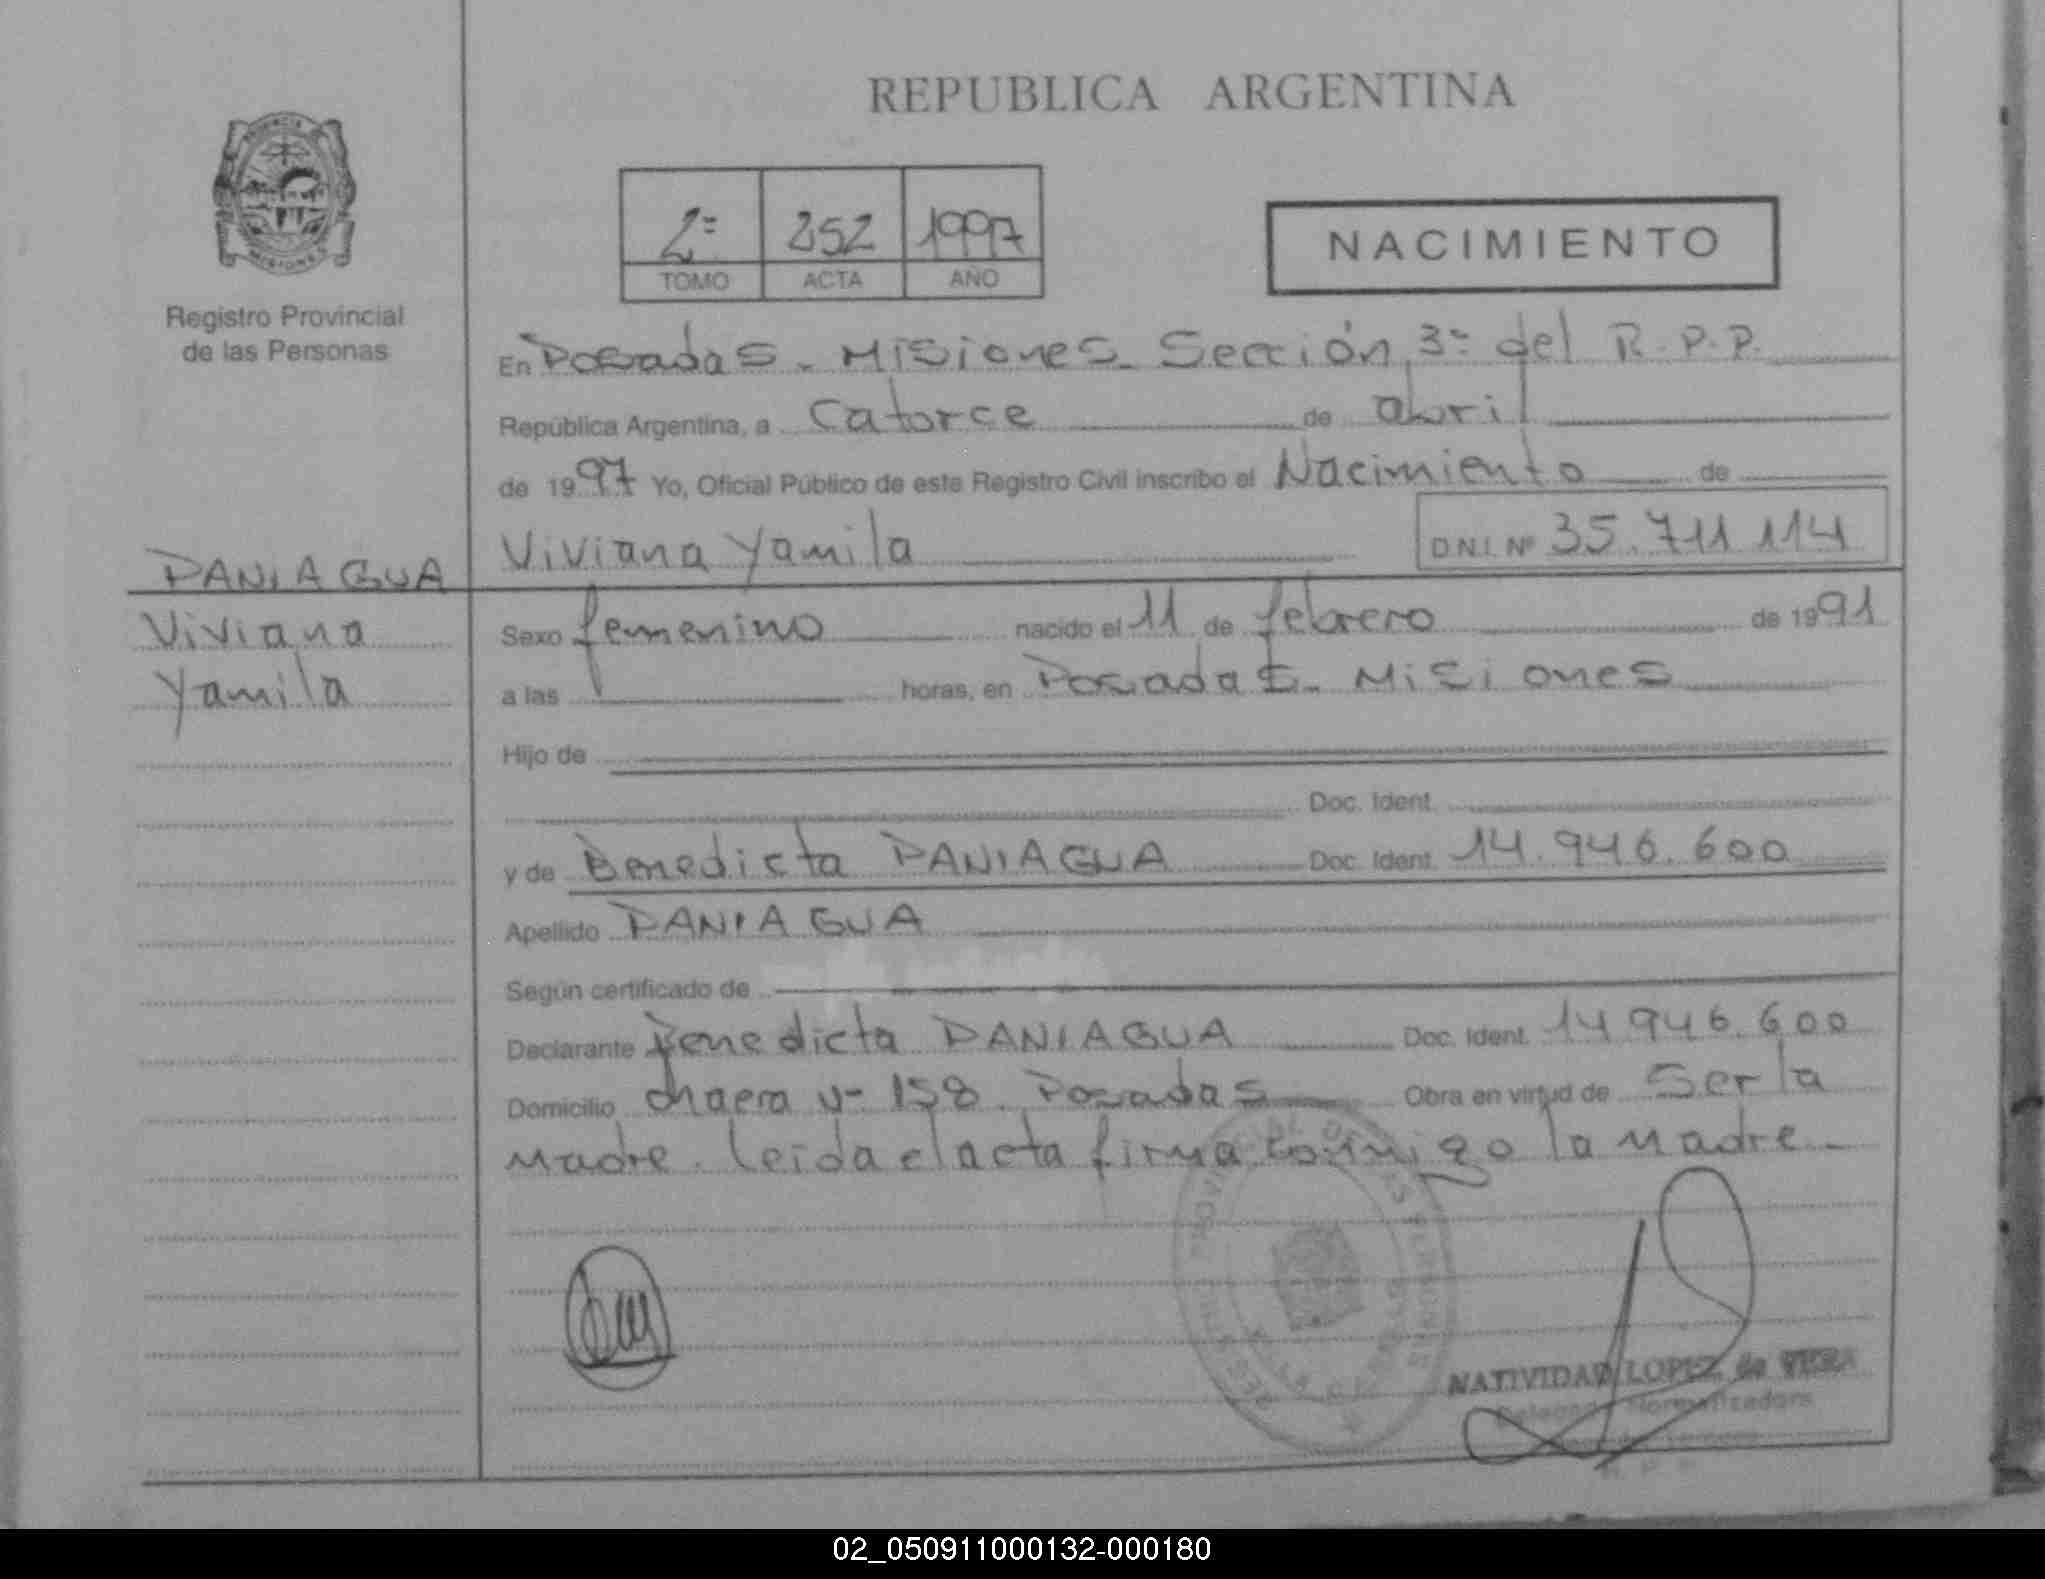 REPUBLICA ARGENTINA
PROVINCIA
MISIONES
Registro Provincial
de las Personas
2º 252 1997
TOMO ACTA AÑO
NACIMIENTO
En Posadas - Misiones - Sección 3º del R.P.P.
República Argentina, a catorce de abril
de 1997 Yo, Oficial Público de este Registro Civil inscribo el Nacimiento de
Viviana Yamila D.N.I. Nº 35.711.114
PANIAGUA
Viviana
Yamila
Sexo femenino nacido el 11 de febrero de 1991
a las horas, en Posadas - Misiones
Hijo de
Doc. Ident.
y de Benedicta PANIAGUA Doc. Ident. 14.946.600
Apellido PANIAGUA
Según certificado de
Declarante Benedicta PANIAGUA Doc. Ident. 14.946.600
Domicilio chacra Nº 158 Posadas Obra en virtud de ser la
madre. leida el acta firma conmigo la madre -
NATIVIDAD LOPEZ de VERA
Delegada Normalizadora
02_050911000132-000180